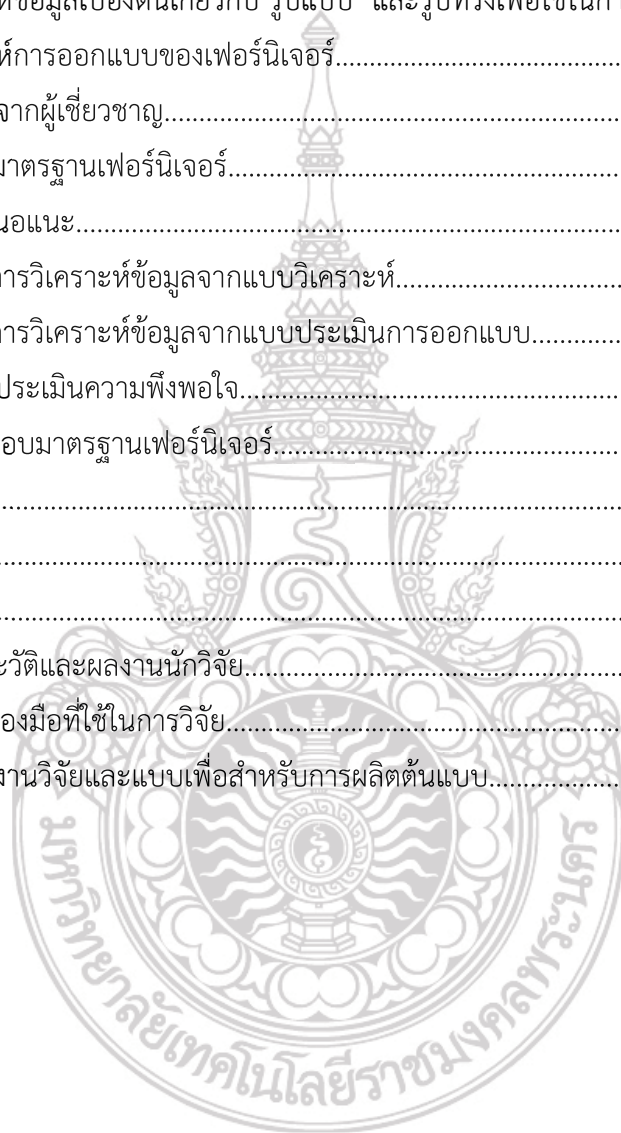 ห์ข้อมูลเบื้องต้นเกี่ยวกับ รูปแบบ และรูปทรงเพื่อใช้ในกา
ห์การออกแบบของเฟอร์นิเจอร์........................................
จากผู้เชี่ยวชาญ................................................................
มาตรฐานเฟอร์นิเจอร์.......................................................
นอแนะ...........................................................................
การวิเคราะห์ข้อมูลจากแบบวิเคราะห์................................
การวิเคราะห์ข้อมูลจากแบบประเมินการออกแบบ.............
ประเมินความพึงพอใจ.....................................................
อบมาตรฐานเฟอร์นิเจอร์.................................................
.....................................................................................
.....................................................................................
.....................................................................................
ะวัติและผลงานนักวิจัย....................................................
องมือที่ใช้ในการวิจัย.......................................................
งานวิจัยและแบบเพื่อสำหรับการผลิตต้นแบบ...................
มหาวิทยาลัยเทคโนโลยีราชมงคลพระนคร